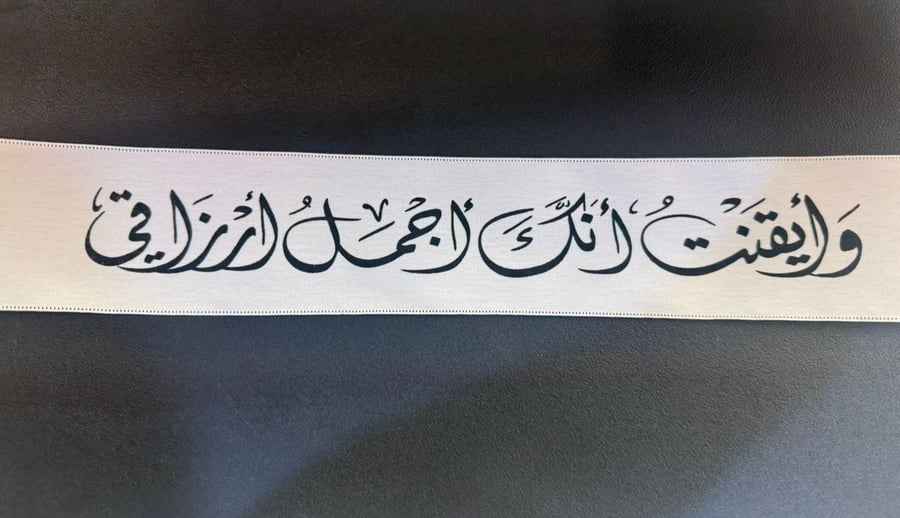 وَأيقنتُ أنَّكَ أجْمَلُ أرْزَاقي